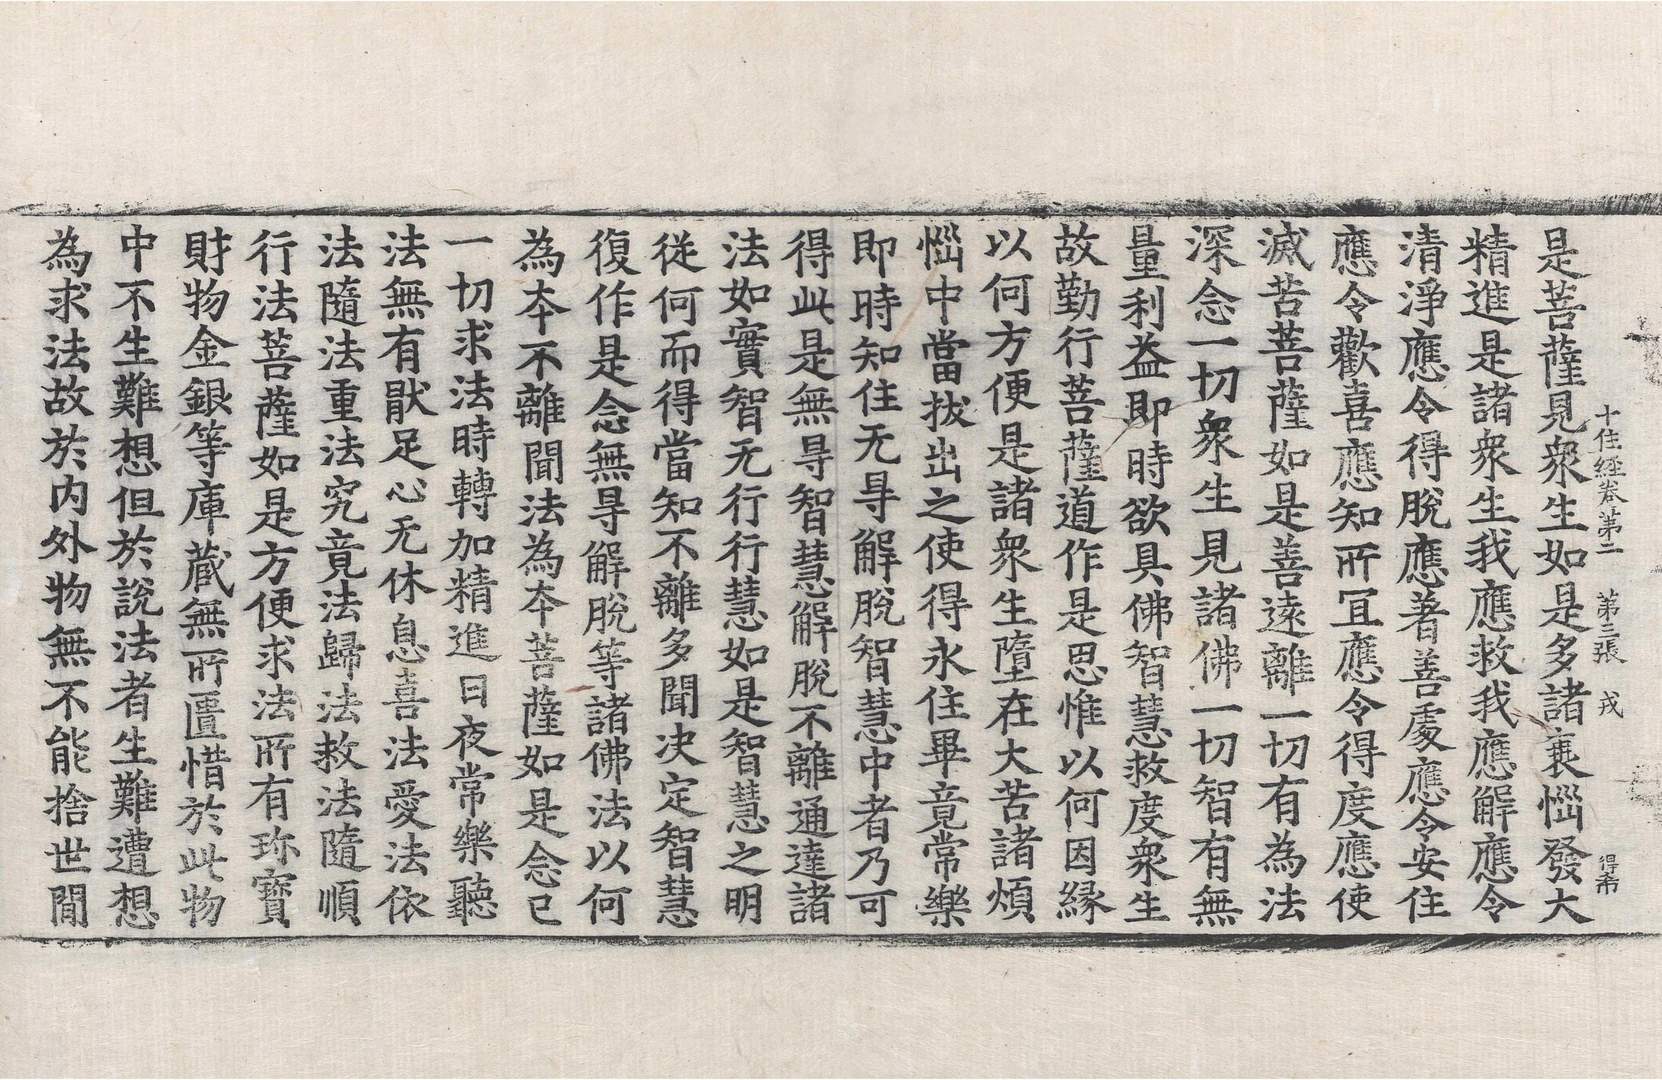 十住經卷第二　第三張　戎　得布
是菩薩見衆生如是多諸衰惱發大
精進是諸衆生我應救我應解應令
清淨應令得脫應著善處應令安住
應令歡喜應知所冝應令得度應使
滅苦菩薩如是善遠離一切有為法
深念一切衆生見諸佛一切智有無
量利益即時欲具佛智慧救度衆生
故勤行菩薩道作是思惟以何因緣
以何方便是諸衆生墮在大苦諸煩
惱中當拔出之使得永住畢竟常樂
即時知住无㝵解脫智慧中者乃可
得此是無㝵智慧解脫不離通達諸
法如實智无行行慧如是智慧之明
從何而得當知不離多聞决定智慧
復作是念無㝵解脫等諸佛法以何
為夲不離聞法為夲菩薩如是念已
一切求法時轉加精進日夜常樂聽
法無有猒足心无休息喜法愛法依
法隨法重法究竟法歸法救法隨順
行法菩薩如是方便求法所有珎寶
財物金銀等庫藏無所匱惜於此物
中不生難想但於說法者生難遭想
為求法故於内外物無不能捨世閒